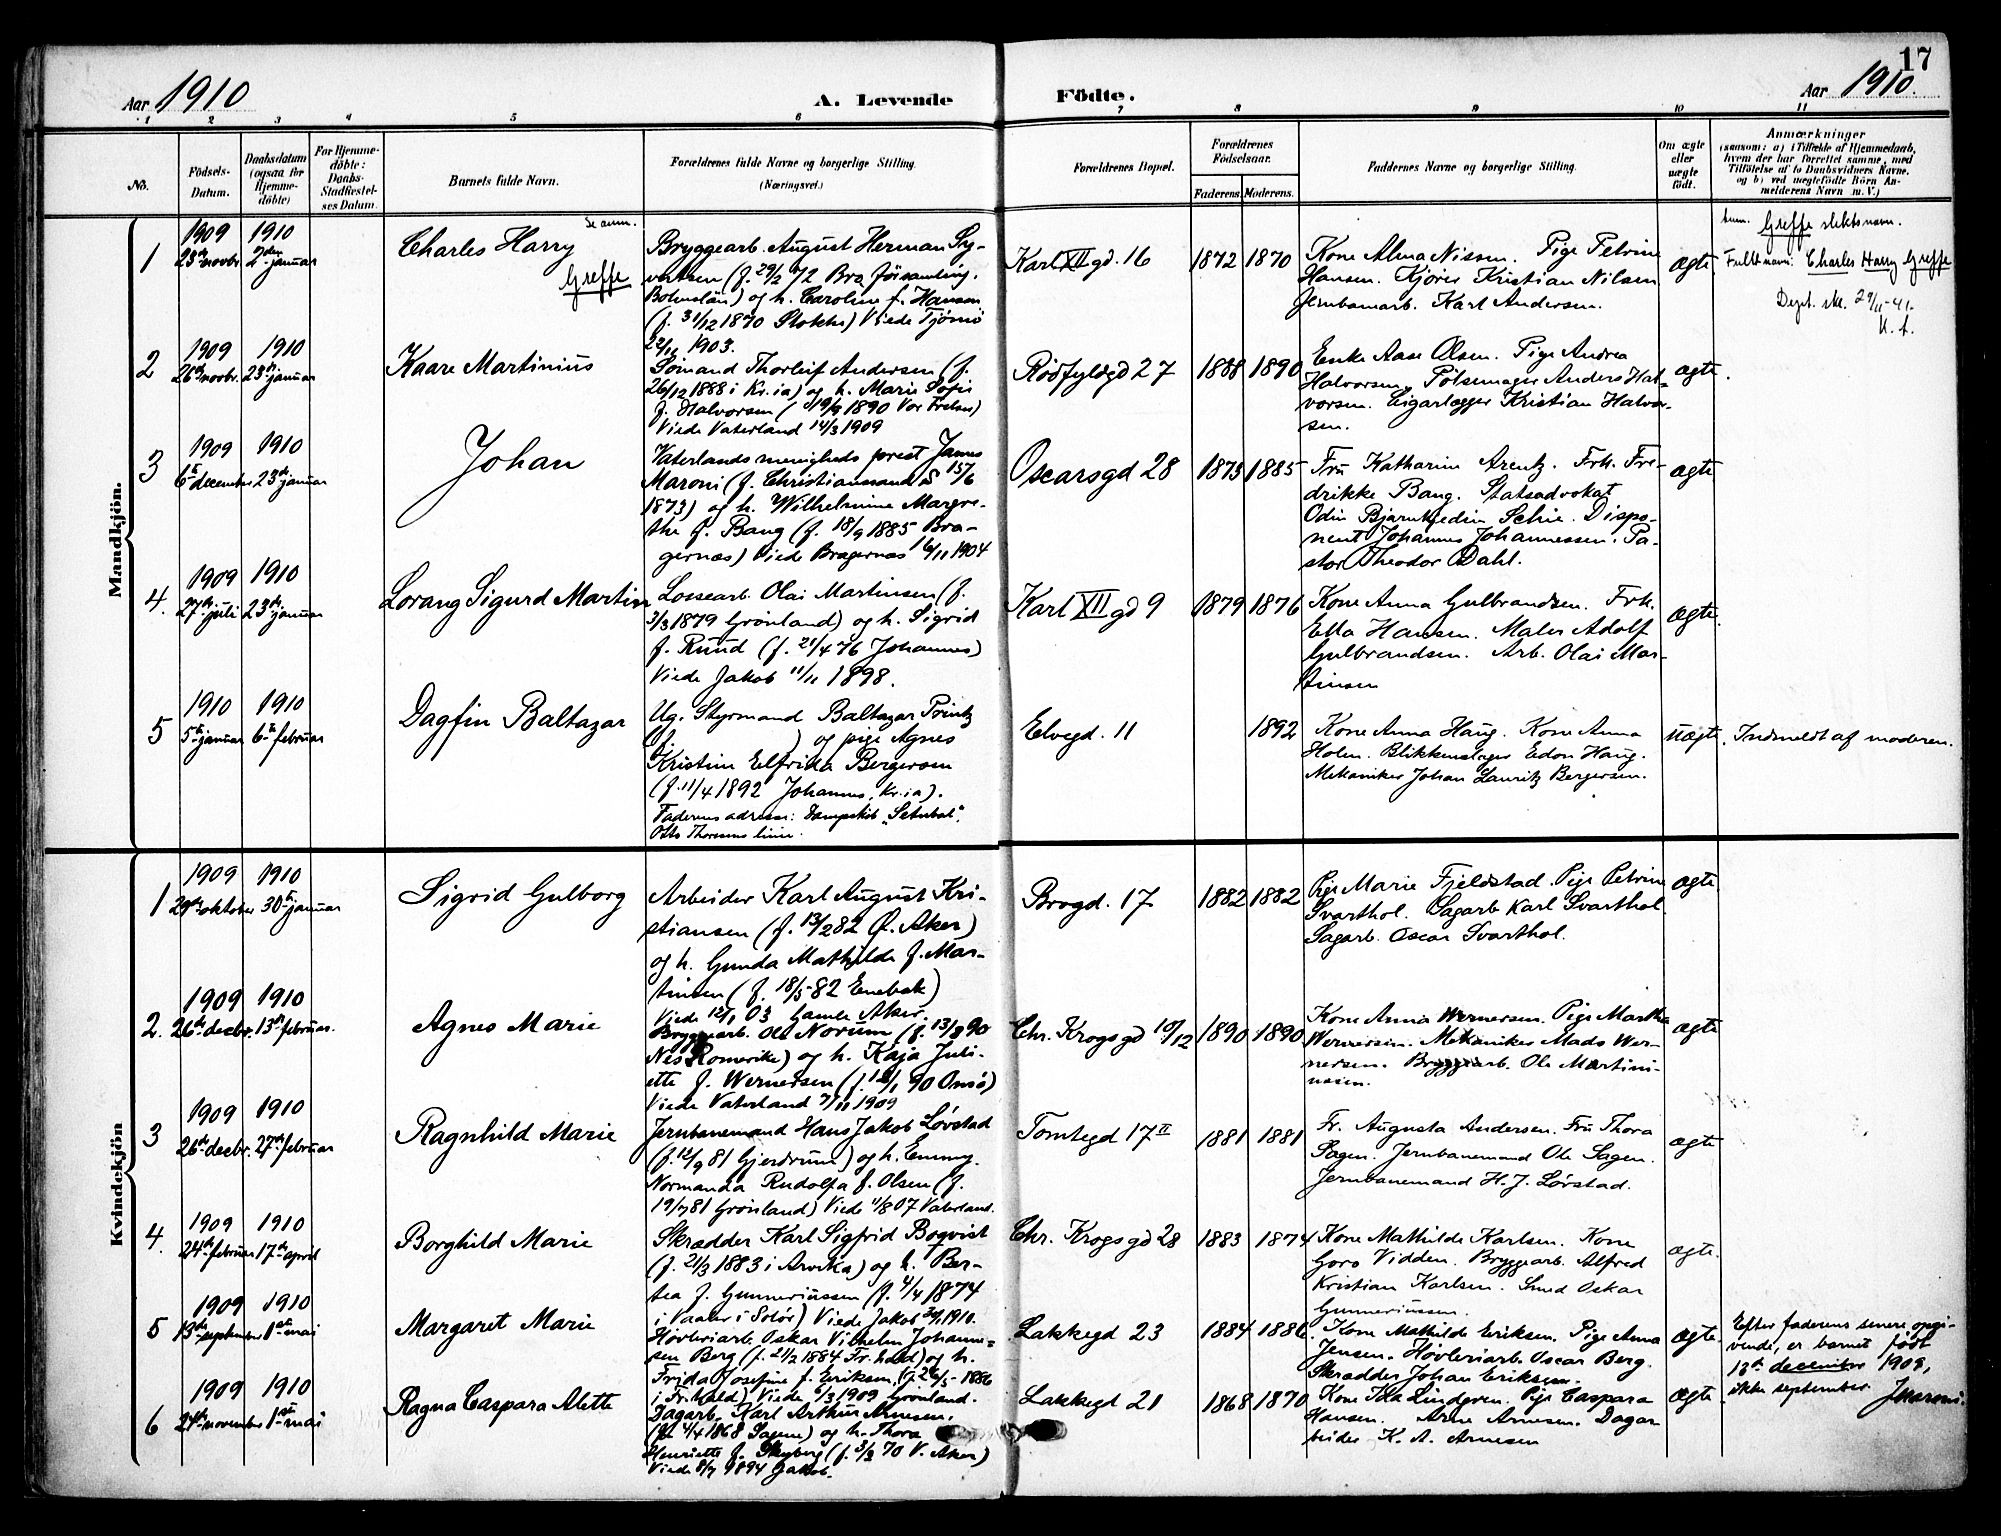 17
Aar 1910
A. Levende
Födte.
Aar 1910.
1 2 3 4 5 6 7 8 9 10 11
No.
Födsels-
Datum.
Daabsdatum
(ogsaa for
Hjemme-
döbte)
For Hjemme-
döbte:
Daabs-
Stadfæstel-
ses Datum.
Barnets fulde Navn.
Forældrenes fulde Navne og borgerlige Stilling.
(Næringsvei.)
Forældrenes Bopæl.
Forældrenes
Födselsaar.
Faderens. Moderens.
Faddernes Navne og borgerlige Stilling.
Om ægte
eller
uægte
födt.
Anmærkninger
(saasom: a) i Tilfælde af Hjemmedaab,
hvem der har forrettet samme, med
Tilföielse af to Daabsvidners Navne,
og b) ved uægtefödte Börn An-
melderens Navn m. V.)
Mandkjön.
1
1909
28de novbr.
1910
2den januar
Charles Harry
Se anm.
Greffe
Bryggearb. August Herman Sy-
vertsen (f. 29/2 72 Bro församling,
Bohuslän) og h. Caroline f. Hansen
(f. 31/12 1870 Stokke) Viede Tjömö
22/11 1903.
Karl XII gd. 16
1872
1870
Kone Alma Nissen. Pige Petrine
Hansen. Kjörer Kristian Nilsen
Jernbanarb. Karl Andersen.
ægte
anm. Greffe slektsnavn.
Fullt navn: Charles Harry Greffe
Dept. skr. 29/11-41.
K. f.
2
1909
26de novbr.
1910
23de januar
Kaare Martinius
Sömand Thorleif Andersen (f.
26/12 1888 i Kr.ia) og h. Marie Sofie
f. Halvorsen (19/9 1890 Vor Frelser)
Viede Vaterland 14/3 1909
Rödfyldgd 27
1888
1890
Enke Aase Olsen. Pige Andrea
Halvorsen. Pölsemager Anders Hal-
vorsen. Cigarlægger Kristian Halvor-
sen.
ægte.
3
1909
6te december
1910
23de januar
Johan
Vaterlands menigheds prest James
Maroni (f. Christianssand S 15/6
1873) og h. Wilhelmine Margre-
the f. Bang (f. 18/9 1885 Bra-
gernæs) Viede Bragernæs 16/11 1904
Oscarsgd 28
1873
1885
Fru Katharine Arentz. Frk. Fre-
drikke Bang. Statsadvokat
Odin Bjarnhedin Schie. Dispo-
nent Johannes Johannessen. Pa-
stor Theodor Dahl.
ægte
4.
1909
27de juli
1910
23de januar
Lorang Sigurd Martin
Lossearb. Olai Martinsen (f.
3/3 1879 Grönland) og h. Sigrid
f. Ruud (f. 21/4 76 Johannes)
Viede Jakob 11/11 1898.
Karl XII gd 9
1879
1876
Kone Anna Gulbrandsen. Frk.
Ella Hansen. Maler Adolf
Gulbrandsen. Arb. Olai Mar-
tinsen
ægte.
5
1910
5te januar
1910
6te februar
Dagfin Baltazar
Ug. Styrmand Baltazar Printz
( ) og pige Agnes
Kristine Elfrida Bergersen
(f. 11/4 1892 Johannes, Kr.ia).
Faderens adresse: Dampskib "Setubal",
Otto Thoresens linie.
Elvegd. 11
1892
Kone Anna Haug. Kone Anna
Holen. Blikkenslager Edon Haug.
Mekaniker Johan Lauritz Bergersen.
uægte.
Indmeldt af moderen.
Kvindekjön
1
1909
29de oktober
1910
30te januar
Sigrid Gulborg
Arbeider Karl August Kri-
stiansen (f. 13/2 82 Ö. Aker)
og h. Gunda Mathilde f. Mar-
tinsen (f. 18/5-82 Enebak)
Viede 12/1 03 Gamle Aker.
Brogd. 17
1882
1882
Pige Marie Fjeldstad. Pige Petrine
Svarthol. Sagarb. Karl Svarthol.
Sagarb. Oscar Svarthol.
ægte
2.
1909
26de decbr.
1910
13de februar.
Agnes Marie
Bryggearb. Ole Norum (f. 13/8 90
Nes Romerike) og h. Kaja Juli-
ette f. Wernersen (f. 18/1 90 Onsö)
Viede Vaterland 7/11 1909
Chr. Krogs gd 10/12
1890
1890
Kone Anna Wernersen. Pige Martha
Wernersen. Mekaniker Mads Wer-
nersen. Bryggearb. Ole Martini-
ussen.
ægte
3
1909
26de decbr.
1910
27de februar
Ragnhild Marie
Jernbanemand Hans Jakob Lövstad
(f. 12/9 81 Gjerdrum) og h. Emmy
Normanda Rudolfa f. Olsen (f.
19/7 81 Grönland) Viede 4/8 07 Vaterland.
Tomtegd 17 II
1881
1881
Fr. Augusta Andersen. Fru Thora
Sagen. Jernbanemand Ole Sagen.
Jernbanemand H. J. Lövstad.
ægte
4.
1909
24de februar
1910
17de april
Borghild Marie
Skrædder Karl Sigfrid Boqvist
(f. 21/3 1883 i Arvika) og h. Ber-
tea f. Gunneriussen (f. 4/4 1874
i Vaaler i Solör) Viede Jakob 1910.
Chr. Krogs gd 28
1883
1874
Kone Mathilde Karlsen. Kone
Goro Vidden. Bryggearb. Alfred
Kristian Karlsen. Smed Oskar
Gunneriussen.
ægte.
5
1909
13de september
1910
1ste mai
Margaret Marie
Hövleriarb. Oskar Vilhelm Johann-
sen Berg (f. 21/2 1884 Fr.hald) og h.
Frida Josefine f. Eriksen, (f. 26/5-1886
i Fr.hald) Viede 6/3 1909 Grönland.
Lakkegd 23
1884
1886
Kone Mathilde Eriksen. Pige Anna
Jensen. Hövleriarb. Oscar Berg.
Skrædder Johan Eriksen.
ægte.
Efter faderens senere opgi-
vende, er barnet født
13de december 1908,
ikke september. J Maroni.
6
1909
24de november
1910
1ste mai
Ragna Caspara Alette
Dagarb. Karl Arthur Arnesen,
(f. 4/4 1868 Sagene) og h. Thora
Henriette f. Skyberg (f. 3/3 70 V. Aker)
Viede 8/7 1894 Jakob.
Lakkegd 21
1868
1870
Kone Ida Lindgren. Pige Caspara
Hansen. Arne Arnesen. Dagar-
beider K. A. Arnesen
ægte